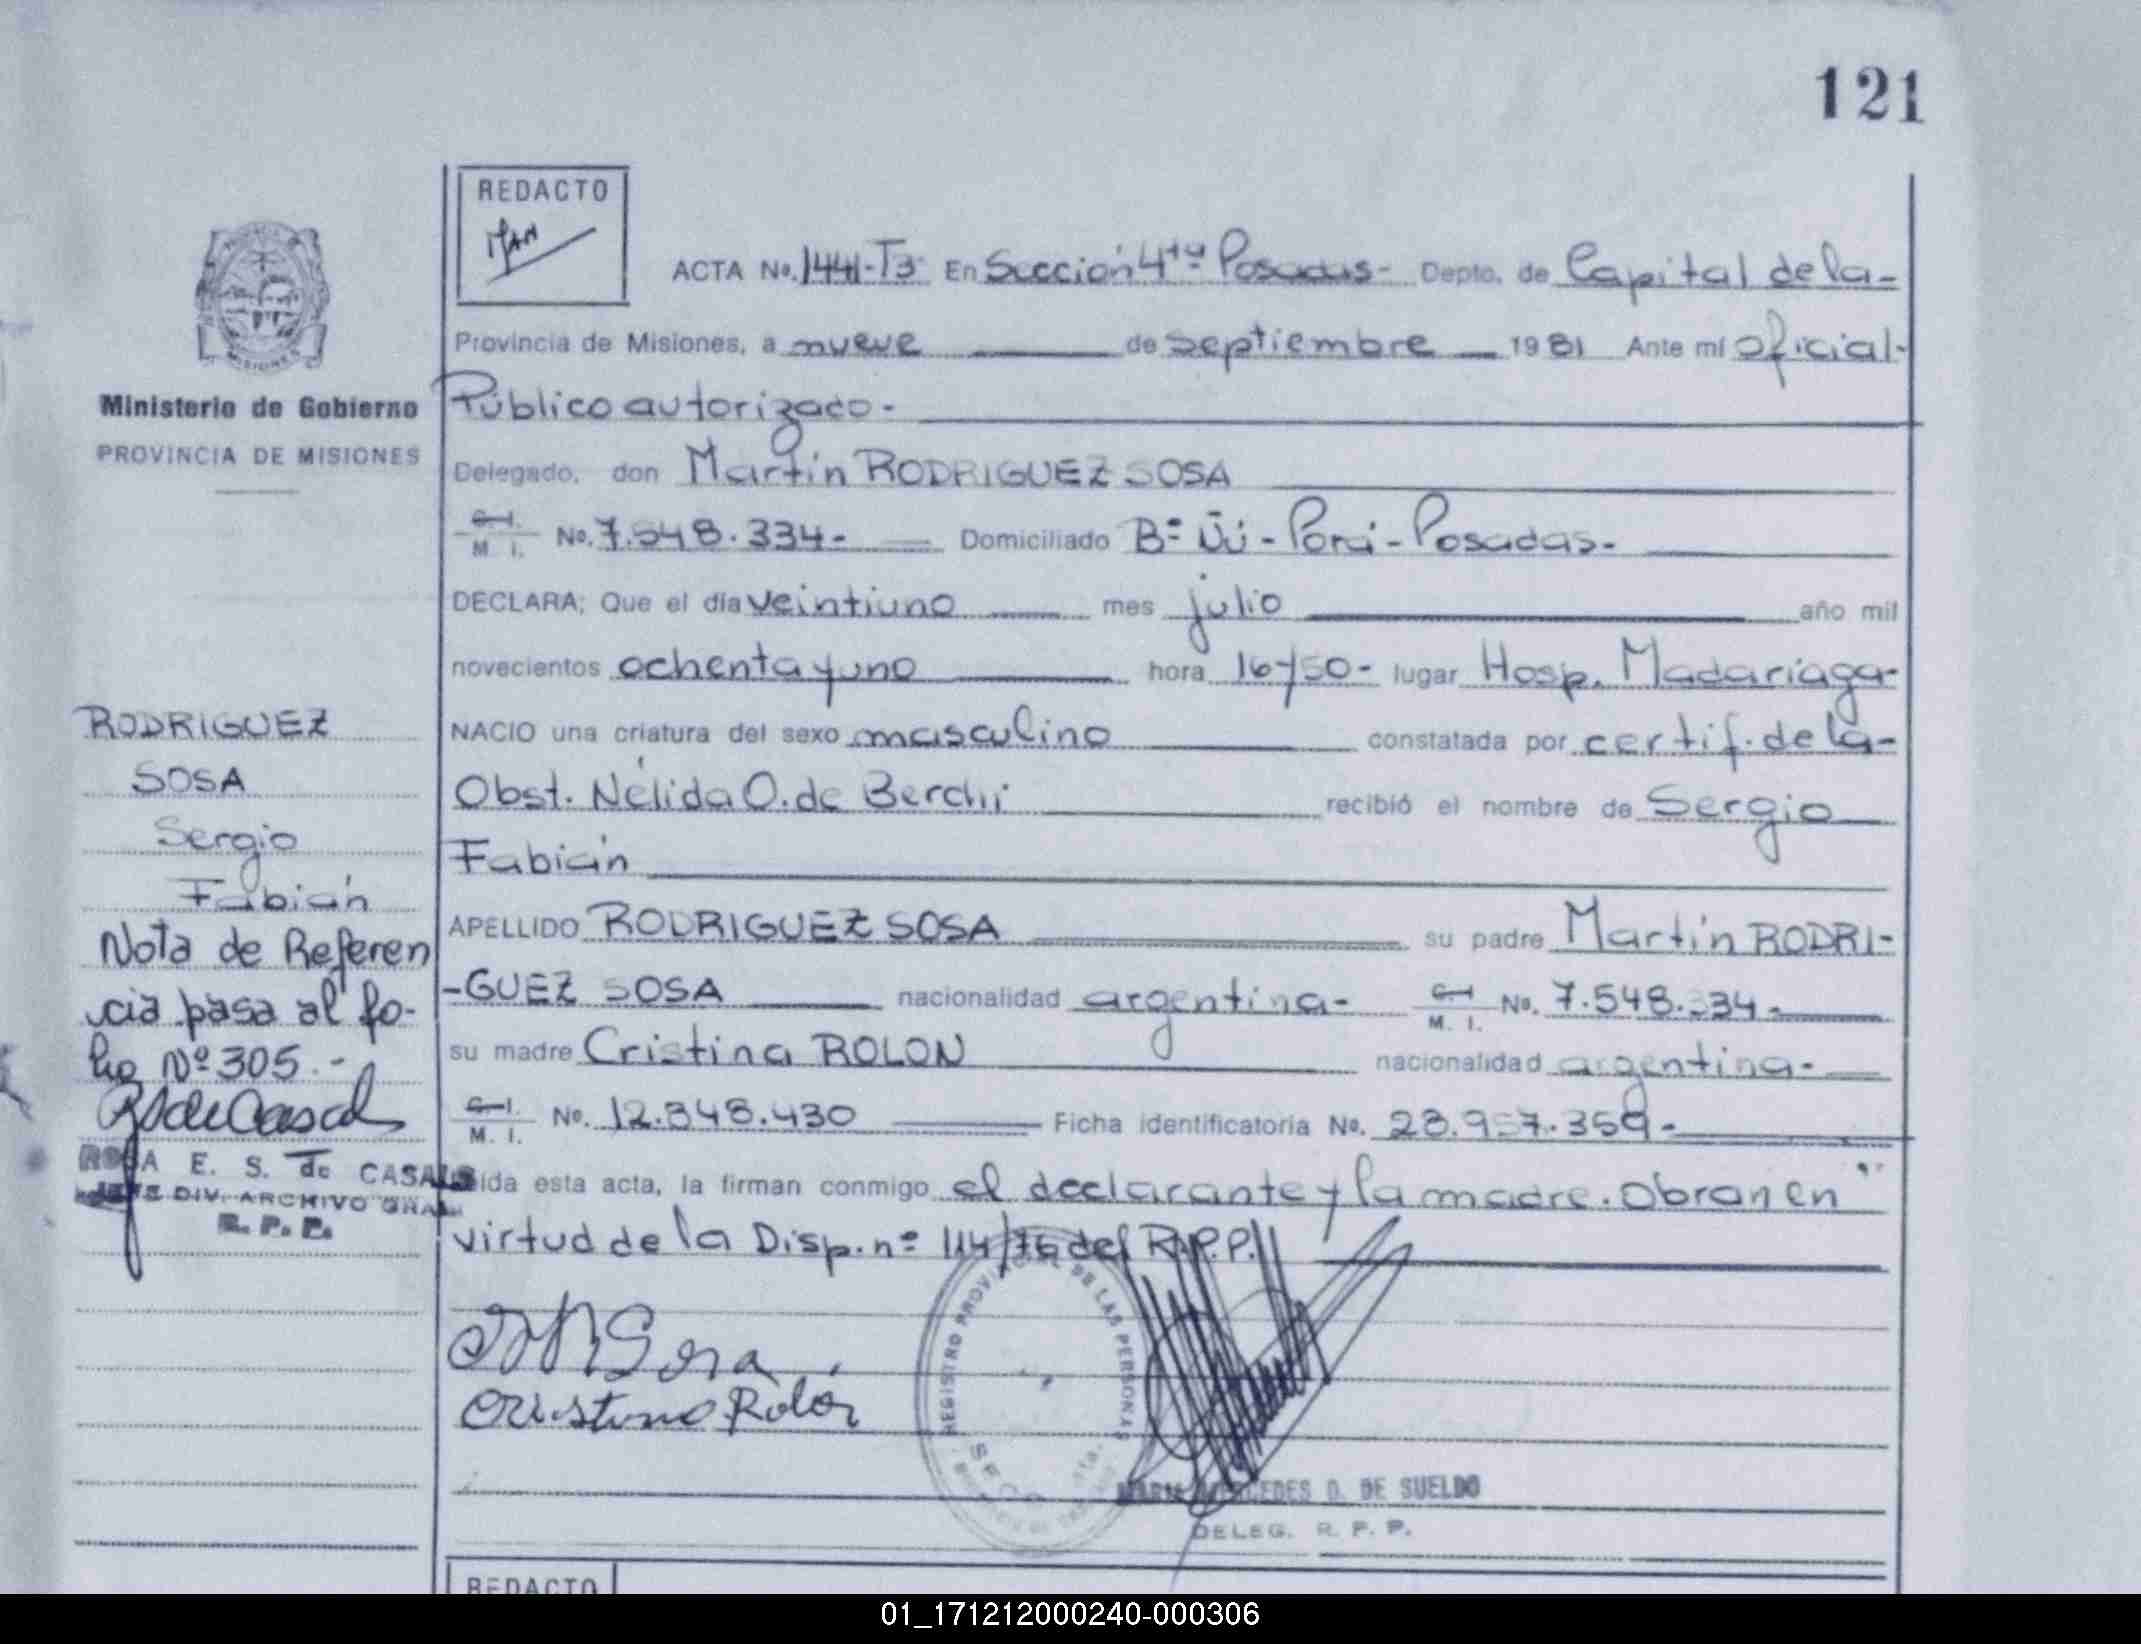 121
REDACTO
ACTA No. 1441-T3- En Sección 4ta Posadas- Depto. de Capital de la-
Provincia de Misiones, a nueve de septiembre 1981 Ante mí oficial-
Público autorizado-
Delegado, don Martín RODRIGUEZ SOSA
C. I.
M. I. No. 7.548.334- Domiciliado Bº Ñu-Porá-Posadas-
DECLARA; Que el día veintiuno mes julio año mil
novecientos ochenta y uno hora 16/50- lugar Hosp. Madariaga-
NACIO una criatura del sexo masculino constatada por certif. de la-
Obst. Nélida O. de Berchi recibió el nombre de Sergio
Fabián
APELLIDO RODRIGUEZ SOSA su padre Martín RODRI-
-GUEZ SOSA nacionalidad argentina- C. I.
M. I. No. 7.548.334-
su madre Cristina ROLON nacionalidad argentina-
C. I.
M. I. No. 12.848.430 Ficha identificatoria No. 28.957.359-
ida esta acta, la firman conmigo el declarante y la madre. Obran en
virtud de la Disp. nº 114/76 del R.P.P.
Cristina Rolon
REGISTRO PROVINCIAL DE LAS PERSONAS
MARIA MERCEDES D. DE SUELDO
DELEG. R. P. P.
REDACTO
MISIONES
Ministerio de Gobierno
PROVINCIA DE MISIONES
RODRIGUEZ
SOSA
Sergio
Fabián
Nota de Referen
cia pasa al fo-
lio Nº 305.-
ROSA E. S. de CASALS
JEFE DIV. ARCHIVO GRAL
R. P. P.
01_171212000240-000306